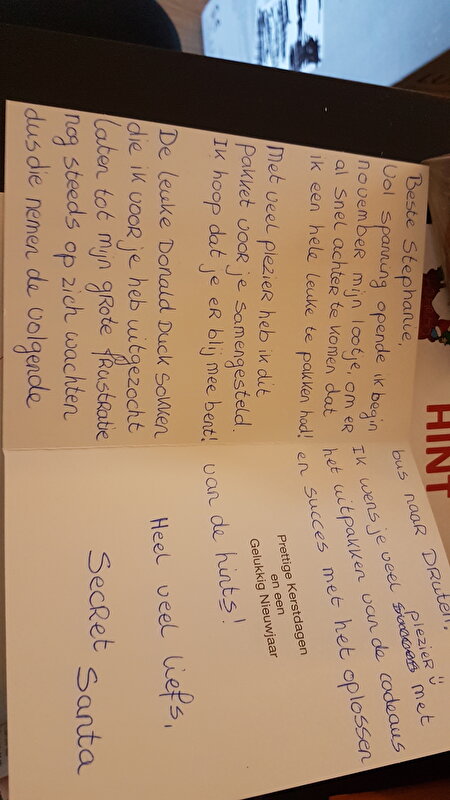 Beste Stephanie,
Vol spanning opende ik begin
november mijn lootje, om er
al snel achter te komen dat
ik een hele leuke te pakken had!
Met veel plezier heb ik dit
pakket voor je samengesteld.
Ik hoop dat je er blij mee bent!
De leuke Donald Duck sokken
die ik voor je heb uitgezocht
laten tot mijn grote frustratie
nog steeds op zich wachten
dus die nemen de volgende
bus naar Druten.
Ik wens je veel plezier ü met
het uitpakken van de cadeaus
en succes met het oplossen
van de hints!
Prettige Kerstdagen
en een
Gelukkig Nieuwjaar
Heel veel liefs,
Secret Santa
HINT